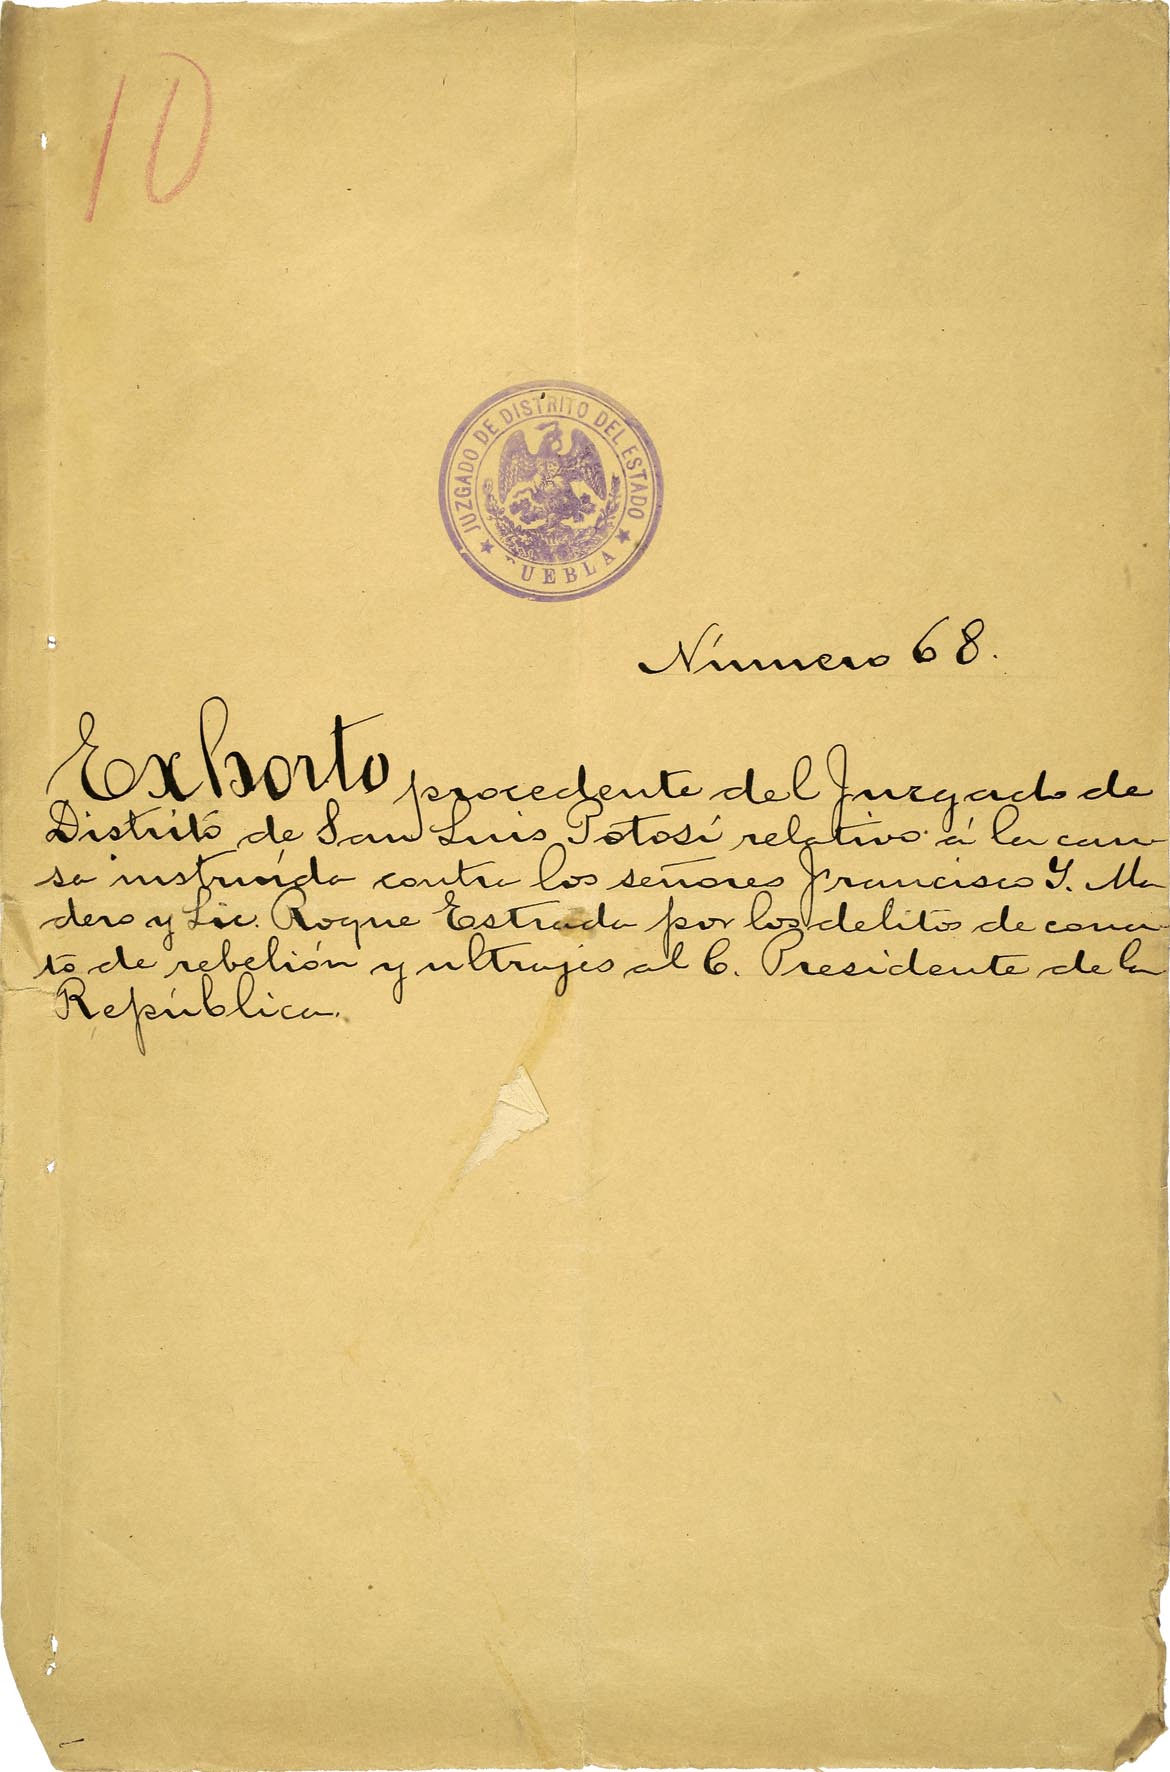 10
JUZGADO DE DISTRITO DEL ESTADO
★ PUEBLA ★
Número 68.
Exhorto procedente del Juzgado de
Distrito de San Luis Potosí relativo á la cau-
sa instruída contra los señores Francisco Y. Ma
dero y Lic. Roque Estrada por los delitos de cona-
to de rebelión y ultrajes al C. Presidente de la
República.